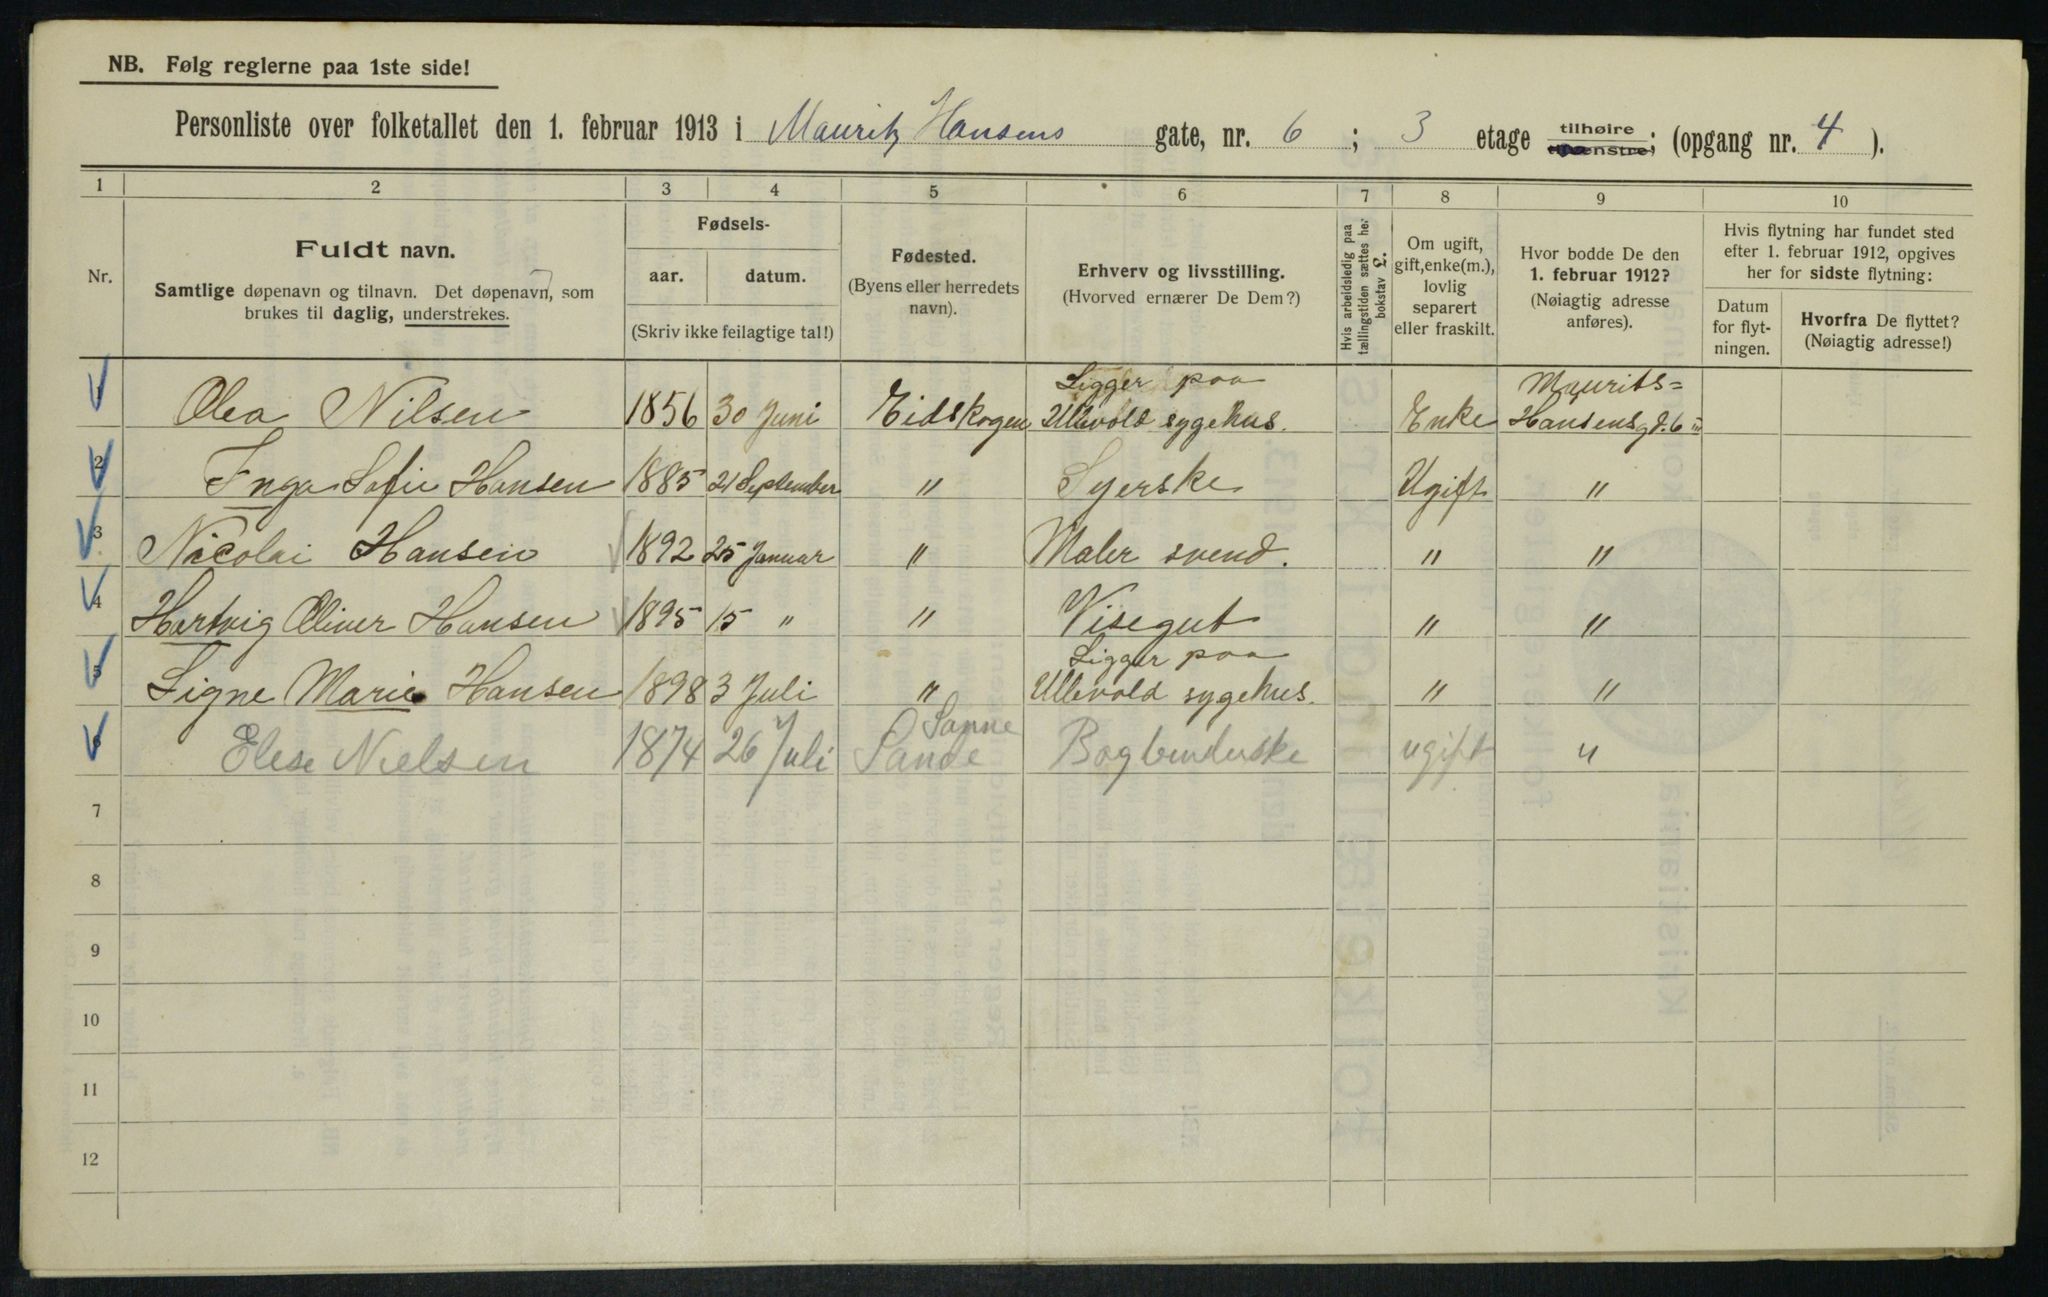 NB. Følg reglerne paa 1ste side!
Personliste over folketallet den 1. februar 1913 i Mauritz Hansens gate, nr. 6 ; 3 etage tilhøire ; (opgang nr. 4 ).
1 2 3 4 5 6 7 8 9 10
Nr.
Fuldt navn.
Samtlige døpenavn og tilnavn. Det døpenavn, som
brukes til daglig, understrekes.
Fødsels-
aar. datum.
(Skriv ikke feilagtige tal!)
Fødested.
(Byens eller herredets
navn).
Erhverv og livsstilling.
(Hvorved ernærer De Dem?)
Hvis arbeidsledig paa
tællingstiden sættes her
bokstav L.
Om ugift,
gift, enke(m.),
lovlig
separert
eller fraskilt.
Hvor bodde De den
1. februar 1912?
(Nøiagtig adresse
anføres).
Hvis flytning har fundet sted
efter 1. februar 1912, opgives
her for sidste flytning:
Datum
for flyt-
ningen.
Hvorfra De flyttet?
(Nøiagtig adresse!)
Ligger paa Maurits=
1 Olea Nilsen 1856 30 Juni Eidskogen Ullevold sygehus. Enke Hansensgd. 6 III
2 Inga Sofie Hansen 1885 21 September " Syerske Ugift "
3 Nicolai Hansen 1892 25 Januar " Maler svend. " "
4 Hartvig Oliver Hansen 1895 15 " " Visegut " "
Ligger paa
5 Signe Marie Hansen 1898 3 Juli " Ullevold sygehus. " "
Sanne
6 Elese Nielsen 1874 26 Juli Sande Bogbinderske ugift "
7
8
9
10
11
12